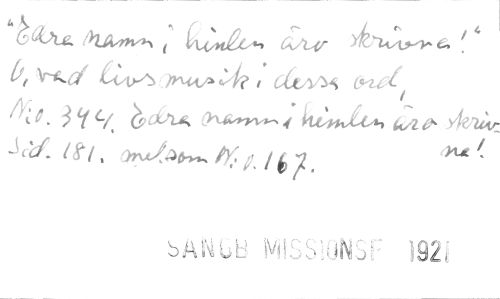 "Edra namn i himlen äro skrivna!"
O, vad livsmusik i dessa ord,
N:o. 344. Edra namn i himlen äro skriv-
Sid. 181. mel. som N:o. 167. na!
SÅNGB MISSIONSF 1921